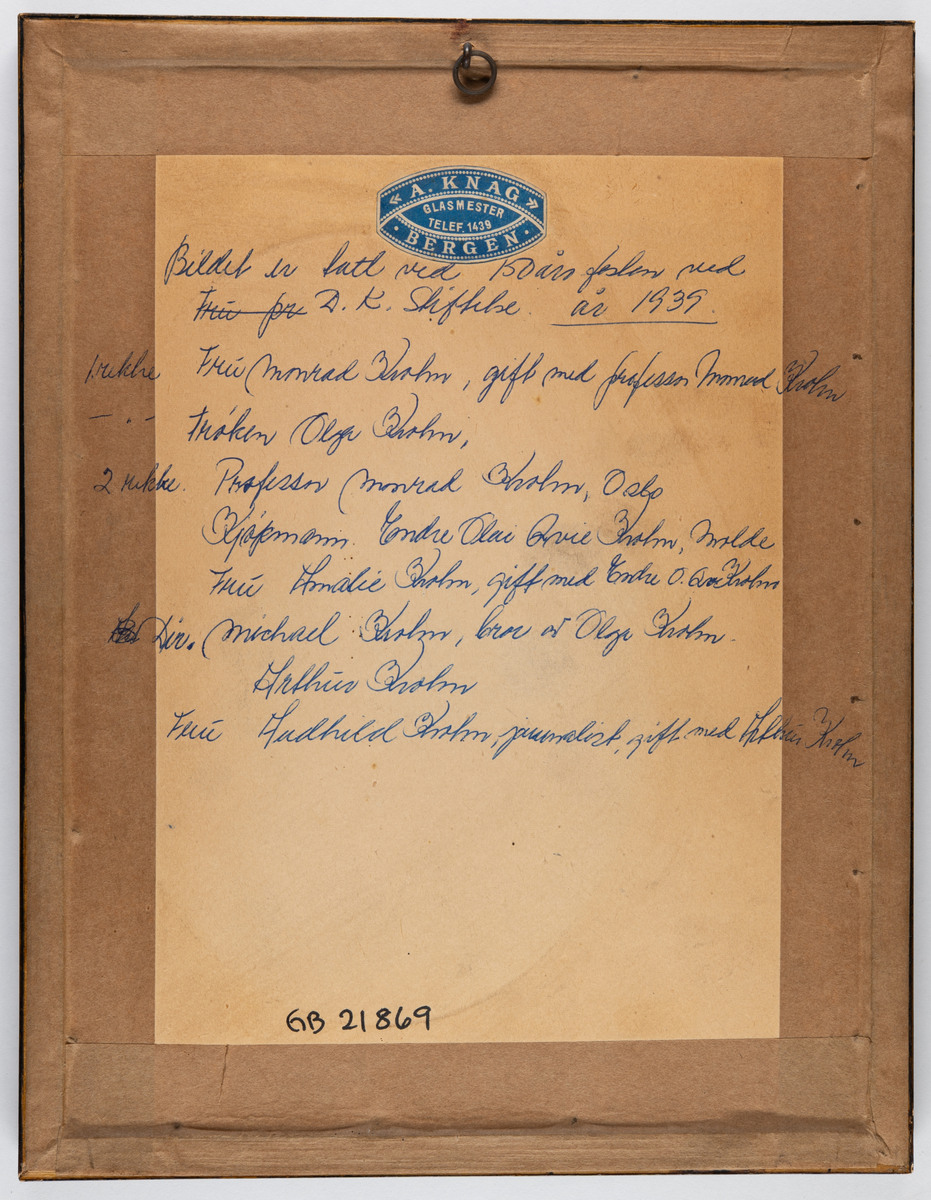 « A. KNAG »
GLASMESTER
TELEF. 1439
· BERGEN ·
Bildet er tatt ved 150års festen ved
Fru pr D. K. Stiftelse. år 1939.
1.rekke Fru Monrad Krohn, gift med professor Monrad Krohn
— . — Frøken Olga Krohn,
2 rekke. Professor Monrad Krohn, Oslo
Kjøpmann. Endre Olai Krohn, Molde
Fru Amalie Krohn, gift med Endre O. Krohn
Dir. Michael Krohn, bror av Olga Krohn.
Arthur Krohn
Fru Krohn, journalist, gift med Arthur Krohn
GB 21869